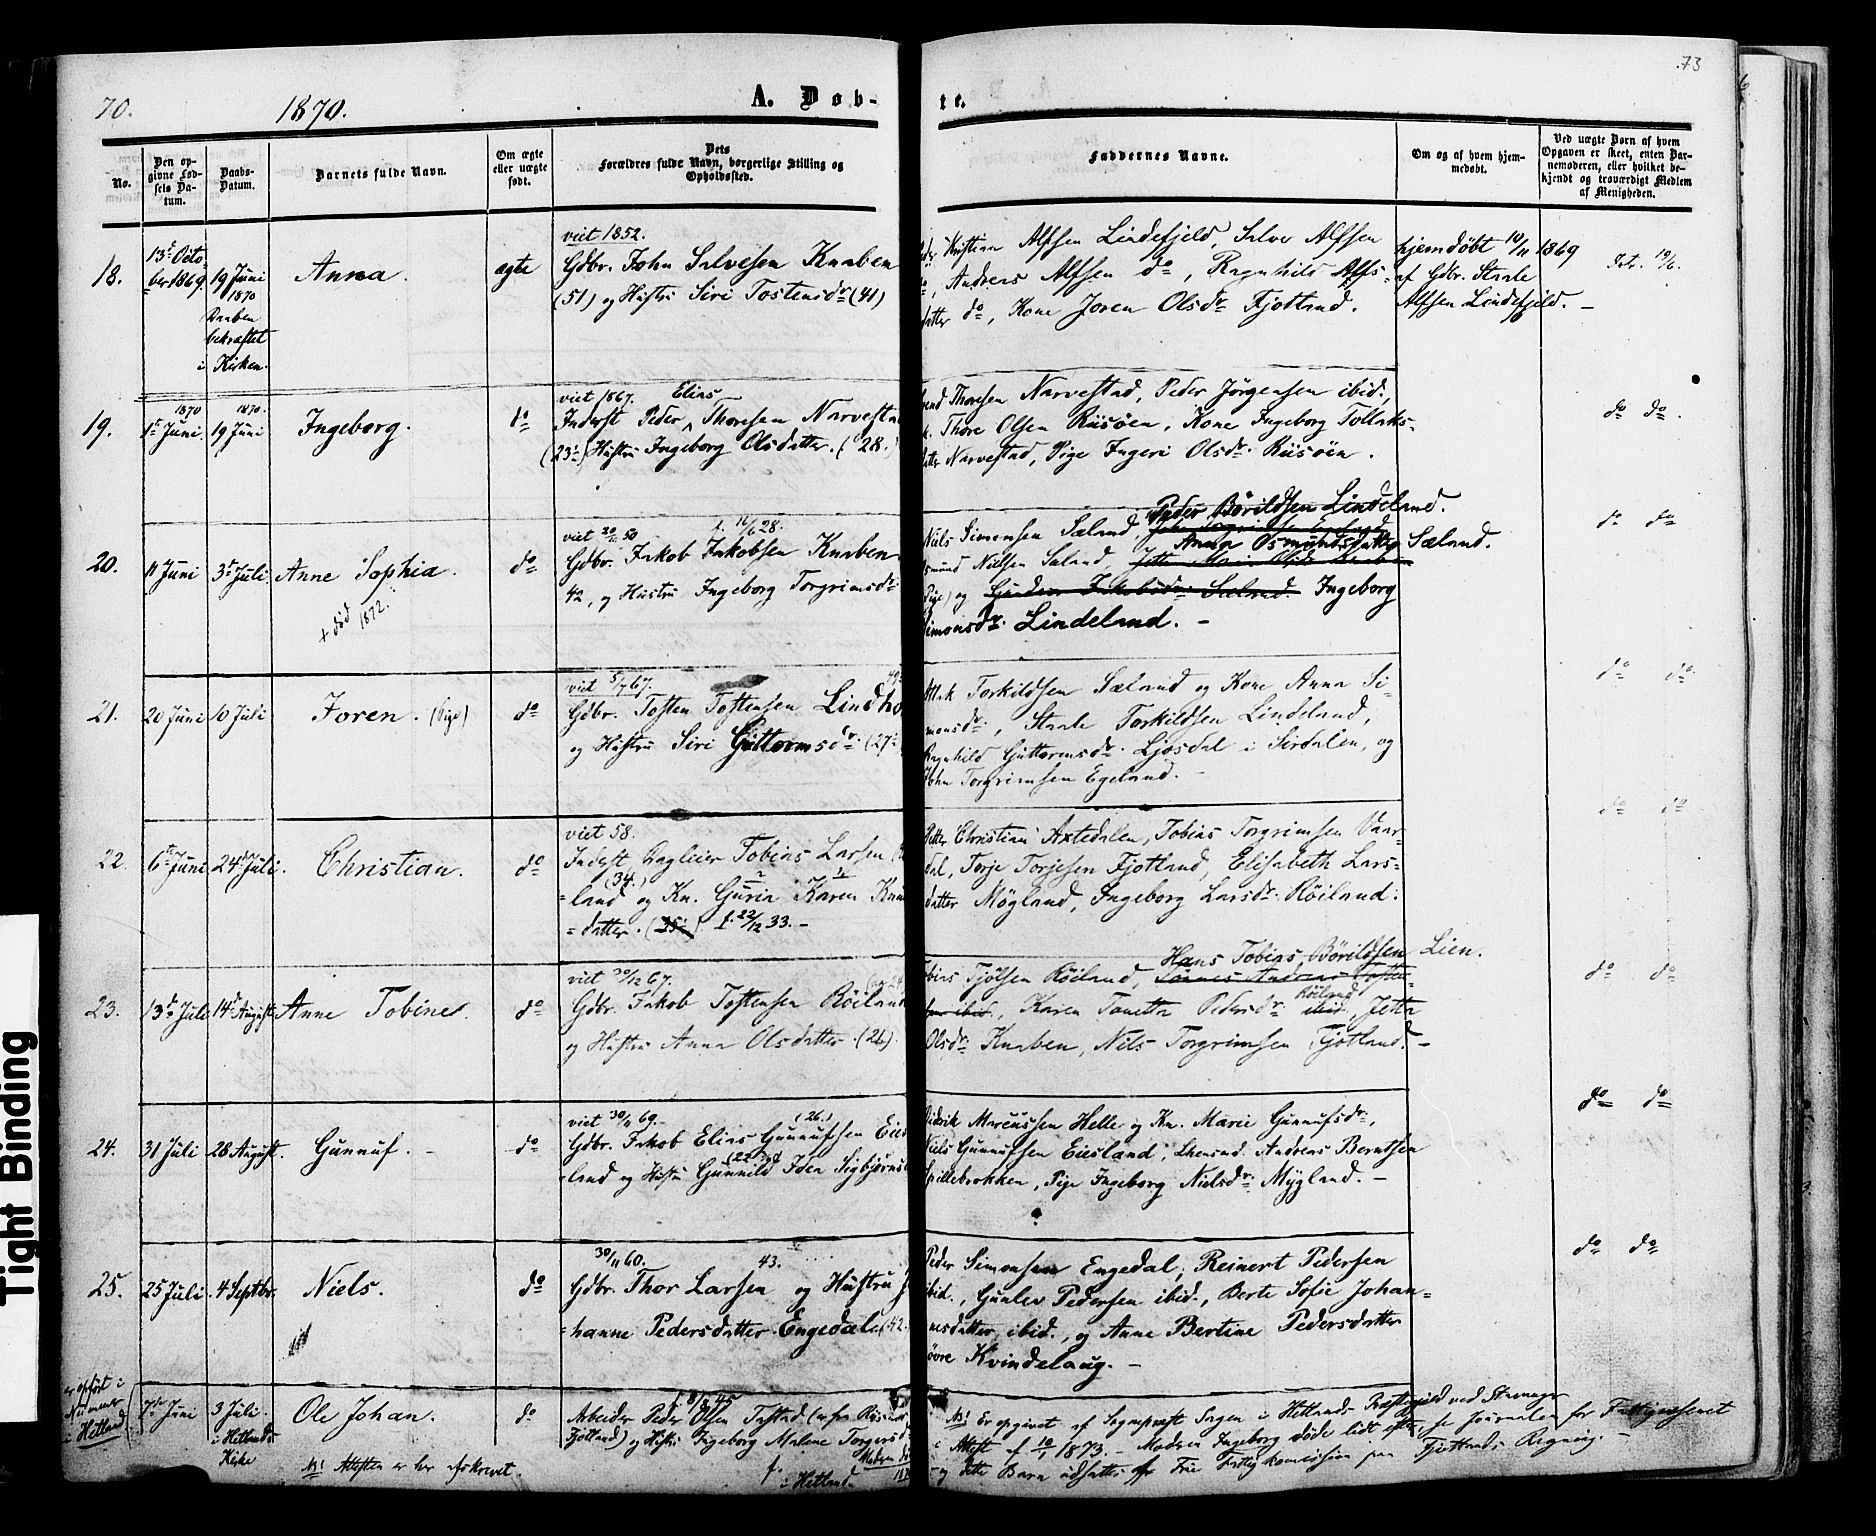 70.
1870.
A. Døb-
te.
73
No.
Den op-
givne Fød-
sels Da-
tum.
Daabs-
Datum.
Barnets fulde Navn.
Om ægte
eller uægte
født.
Dets
Forældres fulde Navn, borgerlige Stilling og
Opholdssted.
Faddernes Navne.
Om og af hvem hjem-
medøbt.
Ved uægte Børn af hvem
Opgaven er skeet, enten Bar-
nemoderen, eller hvilket be-
kjendt og troværdigt Medlem
af Menigheden.
18.
13d Octo
ber 1869
19 Juni
1870
Daaben
bekræftet
i Kirken.
Anna.
ægte
viet 1852.
Gdbr. John Salvesen Knaben
(51) og Hustru Siri Tostensdr (41)
Kristian Alfsen Lindefjeld, Salve Alfsen
Andreas Alfsen do, Ragnhild Alfs-
datter do, Kone Joren Olsdr Fjotland.
hjemdøbt 10/11 1869
af Gdbr. Staale
Alfsen Lindefjeld. –
19/6.
19.
1870
1ste Juni
1870.
19 Juni
Ingeborg.
do
viet 1867. Elias
Inderst Peder Thoresen Narvestad
(23) Hustru Ingeborg Olsdatter. (28.)
Thoresen Narvestad, Peder Jörgensen ibid.,
Thore Olsen Riisöen, Kone Ingeborg Tollaks-
datter Narvestad, Pige Ingeri Olsdr. Riisöen.
do do.
20.
11 Juni
3d Juli
Anne Sophia.
+ död 1872.
do
viet 50 f. 16/6 28.
Gdbr. Jakob Jakobsen Knaben
42, og Hustru Ingeborg Torgrimsdr
Peder Böreldsen Lindeland.
Niels Simonsen Sæland
Anna Osmundsdatter Sæland.
Osmund Nielsen Sæland,
(Pige) og Gunder Jakobsdr Sæland. Ingeborg
Simonsdr. Lindeland. –
do do
21.
20 Juni
10 Juli
Joren. (Pige)
do
viet 5/7 67.
Gdbr. Tosten Tostensen Lindho
og Hustru Siri Guttormsdr. (27)
Torkildsen Sæland og Kone Anna Si-
monsdr., Staale Torkildsen Lindeland,
Ragnhild Guttormsdr. Ljosdal i Sirdalen, og
John Torgrimsen Egeland. –
do do.
22.
6te Juni
24d Juli.
Christian.
do
viet 58.
Inderst Dagleier Tobias Larsen
(34.)
-land og Kn. Guria Karen Knu
-datter. (35) f. 22/12 33. –
Petter Christian Axtedalen, Tobias Torgrimsen Vaar-
dal, Torje Torjesen Fjotland, Elisabeth Lars-
datter Mögland, Ingeborg Larsdr. Röiland.
do do
23.
13de Juli
14d August
Anne Tobine.
do
viet 30/12 67.
Gdbr. Jakob Tostensen Röiland
og Hustru Anna Olsdatter. (26).
Hans Tobias Böreldsen Lien.
Tobias Tjölsen Röiland, Tönnes Andreas Tosten-
sen ibid., Karen Tonetta Pedersdr Röiland ibid., Jetta
Olsdr. Knaben, Nils Torgrimsen Fjotland. –
do do
24.
31 Juli
28 August.
Gunnuf. –
do
viet 30/11 69. (26.)
Gdbr. Jakob Elias Gunnufsen Eies
-land og Hustru Gunnild Iden Sigbjörns
Didrik Marcussen Helle og Kn. Marie Gunnufsdr.,
Niels Gunnufsen Eiesland, Lhensmd. Andreas Berntsen
Spillebrokken, Pige Ingeborg Nielsdr. Mygland. –
do do
25.
25 Juli
4 Septbr.
Niels.
do
30/11 60. 43.
Gdbr. Thor Larsen og Hustru Jo
-hanne Pedersdatter Engedal (42.
Peder Simonsen Engedal, Reinert Pedersen
ibid., Gunlev Pedersen ibid., Berte Sofie Johan-
nesdatter, ibid., og Anne Bertine Pedersdatter
övre Kvindelaug. –
do do
er opfört i
Nummer
i Hetland
7de Juni
3 Juli
i Hetlands
Kirke
Ole Johan.
do
Arbeider Peder Olsen Tasted
Fjotland) og Hustru Ingeborg Malene Torgersd
i Hetland
NB! Attesten er her afskrevet.
NB! Er opgivet af Sognepræst i Hetlands Præstegield ved Stavanger
i Attest af 10/1 1873. – Moderen Ingeborg döde lidt efter, se Journalen for Fattigvæsenet
– og dette Barn udsattes af Fattigkomission paa Fjotlands Regning. –
Tight Binding